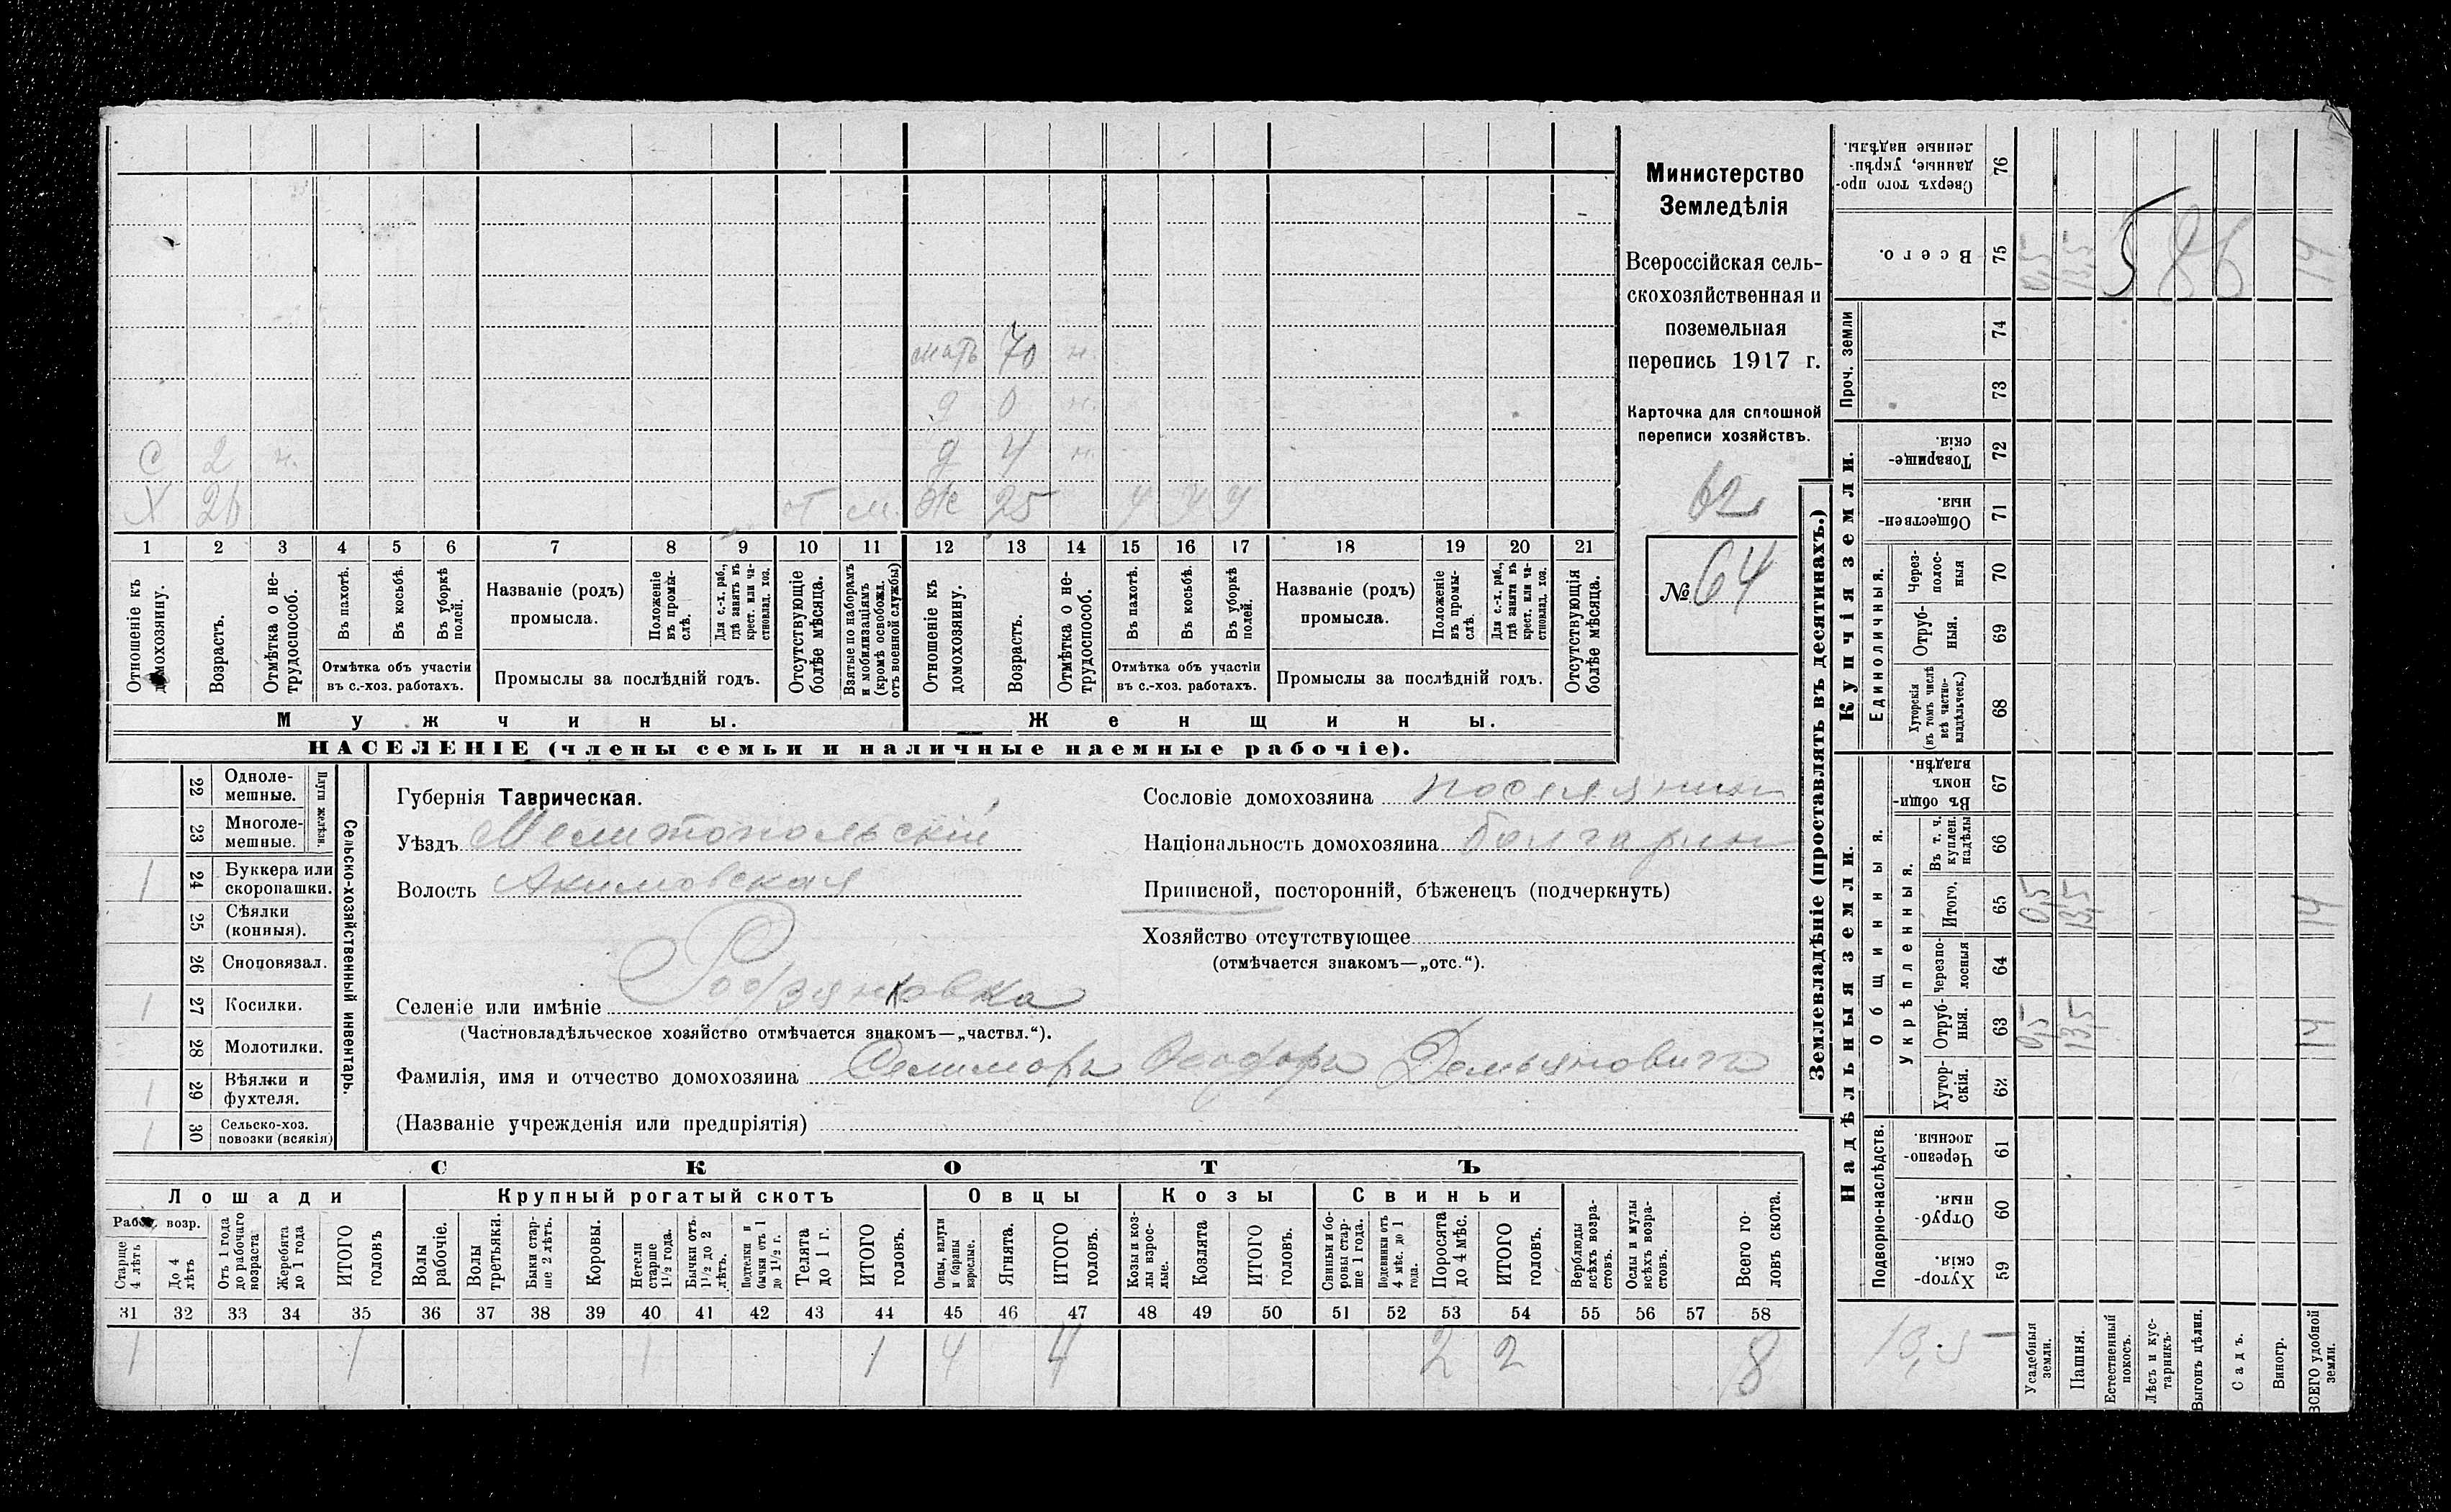 Министерство
Земледѣлія
Всероссійская сель-
скохозяйственная и
поземельная
перепись 1917 г.
Карточка для сплошной
переписи хозяйствъ.
62
№ 64
мать 70 н.
д 0 н.
С 2 н. д 4 н.
Х 26 от м. ж 25 ч ч ч
1 2 3 4 5 6 7 8 9 10 11 12 13 14 15 16 17 18 19 20 21
Отношеніе къ домохозяину.
Возрастъ.
Отмѣтка о не-трудоспособ.
Въ пахотѣ.
Въ косьбѣ.
Въ уборкѣ полей.
Отмѣтка объ участіи
въ с.-хоз. работахъ.
Названіе (родъ)
промысла.
Положеніе въ промы-слѣ.
Для с.-х. раб., гдѣ занятъ въ крест. или ча-стновлад. хоз.
Промыслы за послѣдній годъ.
Отсутствующіе болѣе мѣсяца.
Взятые по наборамъ и мобилизаціямъ (кромѣ освобожд. отъ военной службы)
Отношеніе къ домохозяину.
Возрастъ.
Отмѣтка о не-трудоспособ.
Въ пахотѣ.
Въ косьбѣ.
Въ уборкѣ полей.
Отмѣтка объ участіи
въ с.-хоз. работахъ.
Названіе (родъ)
промысла.
Положеніе въ промы-слѣ.
Для с.-х. раб., гдѣ занята въ крест. или ча-стновлад. хоз.
Промыслы за послѣдній годъ.
Отсутствующія болѣе мѣсяца.
Мужчины. Женщины.
НАСЕЛЕНІЕ (члены семьи и наличные наемные рабочіе).
Сельско-хозяйственный инвентарь.
Плуги желѣзн.
22 Одноле-мешные.
23 Многоле-мешные.
1 24 Буккера или скоропашки.
25 Сѣялки (конныя).
26 Сноповязал.
1 27 Косилки.
28 Молотилки.
1 29 Вѣялки и фухтеля.
1 30 Сельско-хоз. повозки (всякія)
Губернія Таврическая.
Уѣздъ Мелитопольскій
Волость Акимовская
Селеніе или имѣніе Родзянковка
(Частновладѣльческое хозяйство отмѣчается знакомъ—„частвл.“).
Фамилія, имя и отчество домохозяина Демьяновича
(Названіе учрежденія или предпріятія)
Сословіе домохозяина поселянин
Національность домохозяина болгарин
Приписной, посторонній, бѣженецъ (подчеркнуть)
Хозяйство отсутствующее
(отмѣчается знакомъ—„отс.“).
СКОТЪ
Лошади Крупный рогатый скотъ Овцы Козы Свиньи
Рабоч. возр.
Старше 4 лѣтъ
До 4 лѣтъ
Отъ 1 года до рабочаго возраста
Жеребята до 1 года
ИТОГО головъ
Волы рабочіе.
Волы третьяки.
Быки стар-ше 2 лѣтъ.
Коровы.
Нетели старше 1½ года.
Бычки отъ 1½ до 2 лѣтъ.
Подтелки и бычки отъ 1 до 1½ г.
Телята до 1 г.
ИТОГО головъ.
Овцы, валухи и бараны взрослые.
Ягнята.
ИТОГО головъ.
Козы и коз-лы взрос-лые.
Козлята
ИТОГО головъ.
Свиньи и бо-ровы стар-ше 1 года.
Подсвинки отъ 4 мѣс. до 1 года.
Поросята до 4 мѣс.
ИТОГО головъ.
Верблюды всѣхъ возра-стовъ.
Ослы и мулы всѣхъ возра-стовъ.
Всего го-ловъ скота.
31 32 33 34 35 36 37 38 39 40 41 42 43 44 45 46 47 48 49 50 51 52 53 54 55 56 57 58
1 1 1 1 4 4 2 2 8
Землевладѣніе (проставлять въ десятинахъ.)
Надѣльныя земли. Купчія земли.
Проч. земли
Подворно-наслѣдств.
Общинныя.
Укрѣпленныя.
Единоличныя.
76 Сверхъ того про-данные, укрѣп-ленные надѣлы.
75 Всего. 0,5 13,5 14
586
74
73
72 Товарище-скія.
71 Обществен-ныя.
70 Через-полос-ныя
69 Отруб-ныя.
68 Хуторскія (въ томъ числѣ всѣ частно-владѣльческ.)
67 Въ общин-номъ владѣн.
66 Въ т. ч. куплен. надѣлы
65 Итого. 0,5 13,5 14
64 Черезпо-лосныя
63 Отруб-ныя. 0,5 13,5 14
62 Хутор-скія.
61 Черезпо-лосныя.
60 Отруб-ныя.
59 Хутор-скія.
13,5
Усадебныя земли.
Пашня.
Естественный покосъ.
Лѣсъ и кус-тарникъ.
Выгонъ цѣлин.
Садъ.
Виногр.
ВСЕГО удобной земли.